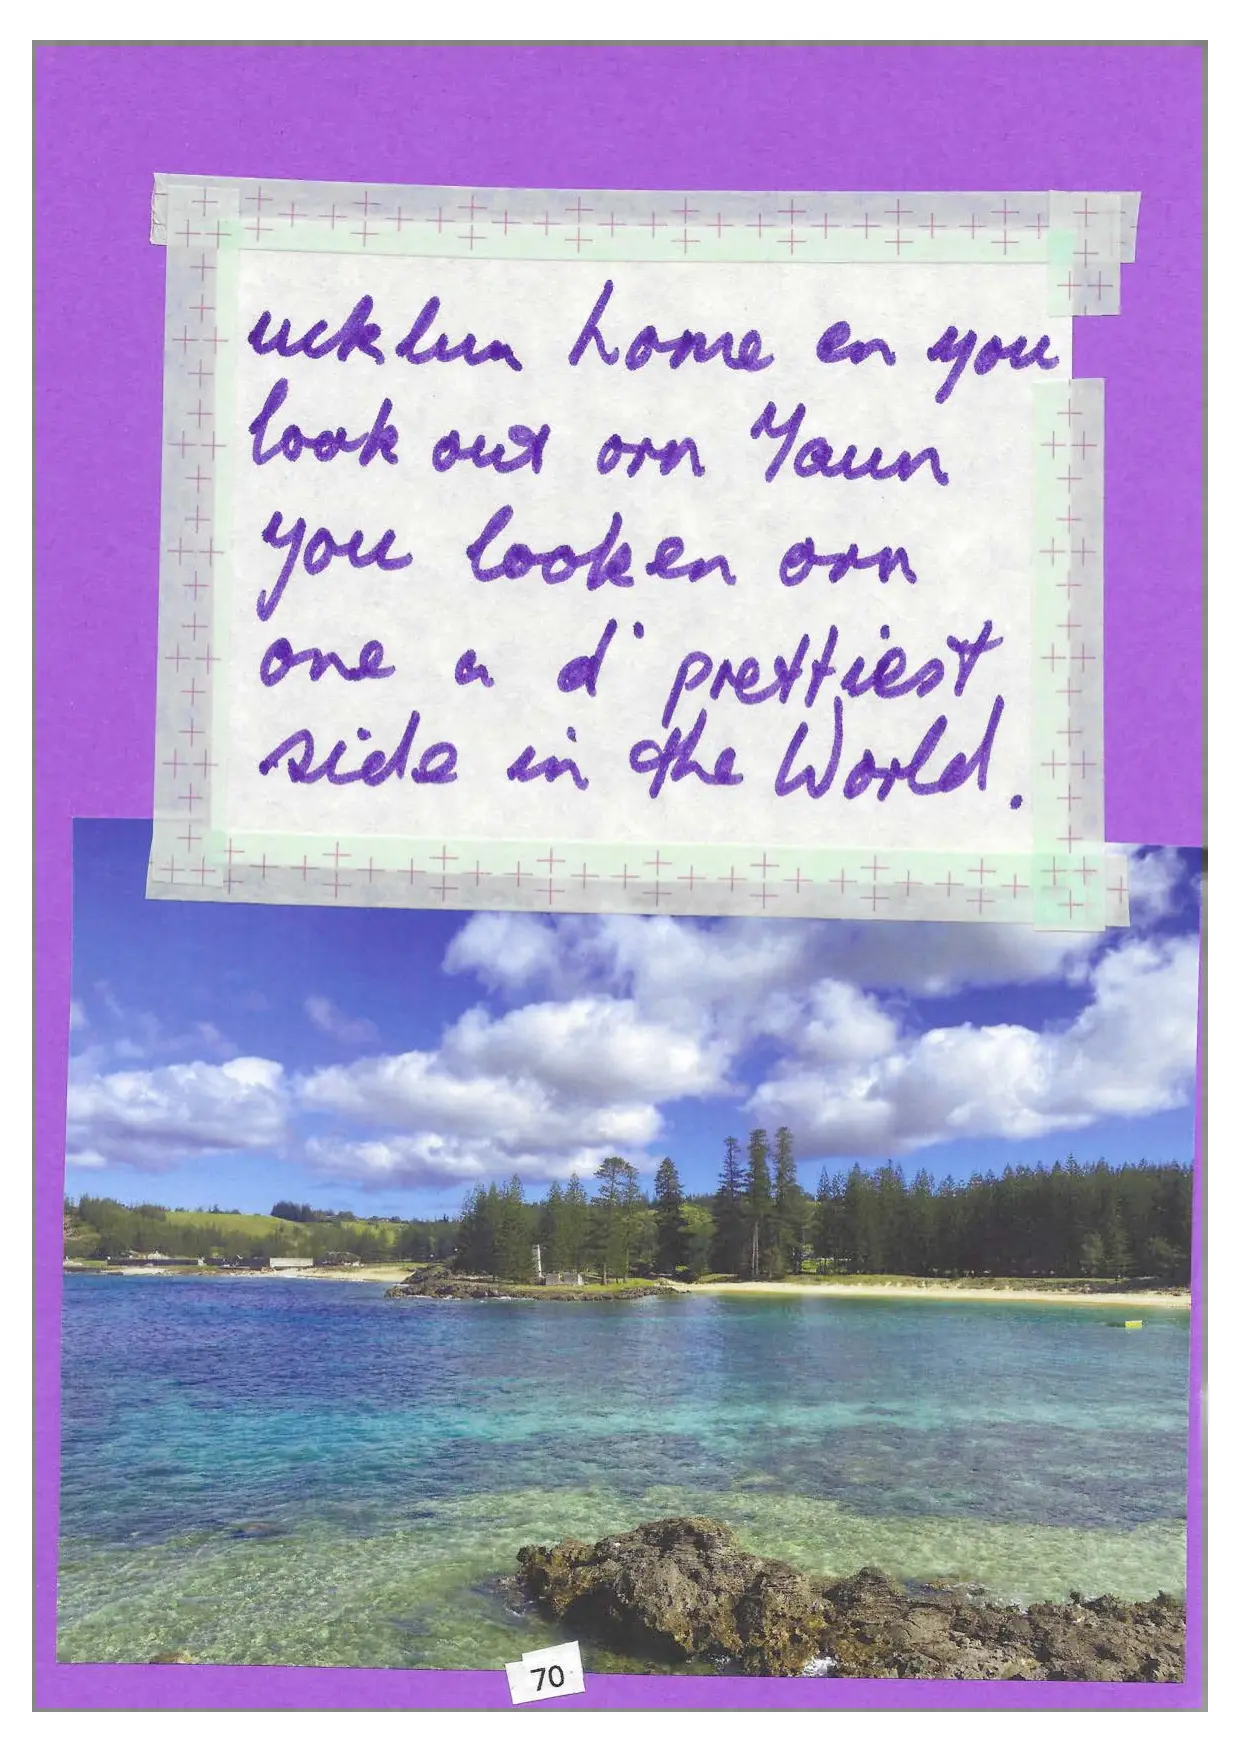 ucklun home en you
look out orn Yaun
you looken orn
one a d' prettiest
side in the World.
70